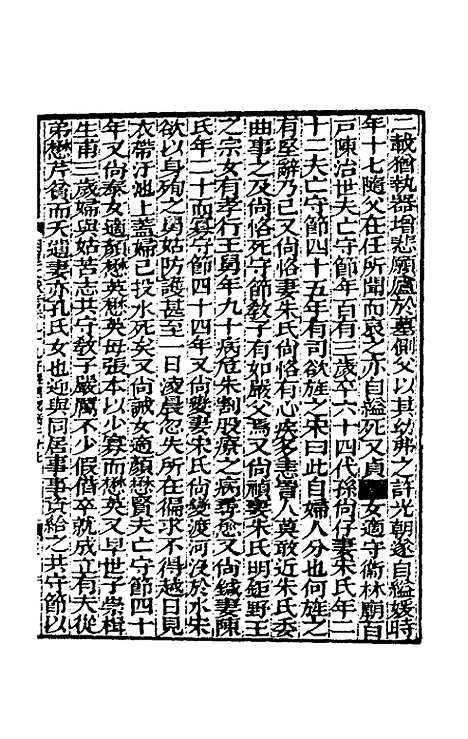 二載猶執器增悲願廬於墓側父以其幼弗之許光朝遂自縊媛時
年十七隨父在任所聞而哀之亦自縊死又貞女適守衛林廟百
戸陳治世夫亡守節年百有三歲卒六十四代孫尚仔妻朱氏年二
十二夫亡守節四十五年有司欲旌之朱曰此自婦人分也何旌之
有堅辭乃已又尚恪妻朱氏尚恪有心疾多恚詈人莫敢近朱氏委
曲事之及尚恪死守節敎子有如嚴父焉又尚禎妻朱氏明鉅野王
之宗女有孝行王舅年九十病危朱割股療之病尋愈又尚鉞妻陳
氏年二十而寡守節四十四年又尚䕫妻宋氏尚䕫渡河沒於水宋
欲以身殉之舅姑防護甚至一日凌晨忽失所在徧求不得越日見
衣帶汙池上蓋婦已投水死矣又尚誠女適顔懋賢夫亡守節四十
年又尚泰女適顔懋英懋英毋張本以少寡而懋英又早世子崇楫
生甫三歲婦與姑苦志共守敎子嚴厲不少假借卒就成立有夫從
弟懋芹貧而夭遺妻亦孔氏女也迎與同居事事資給之共守節以